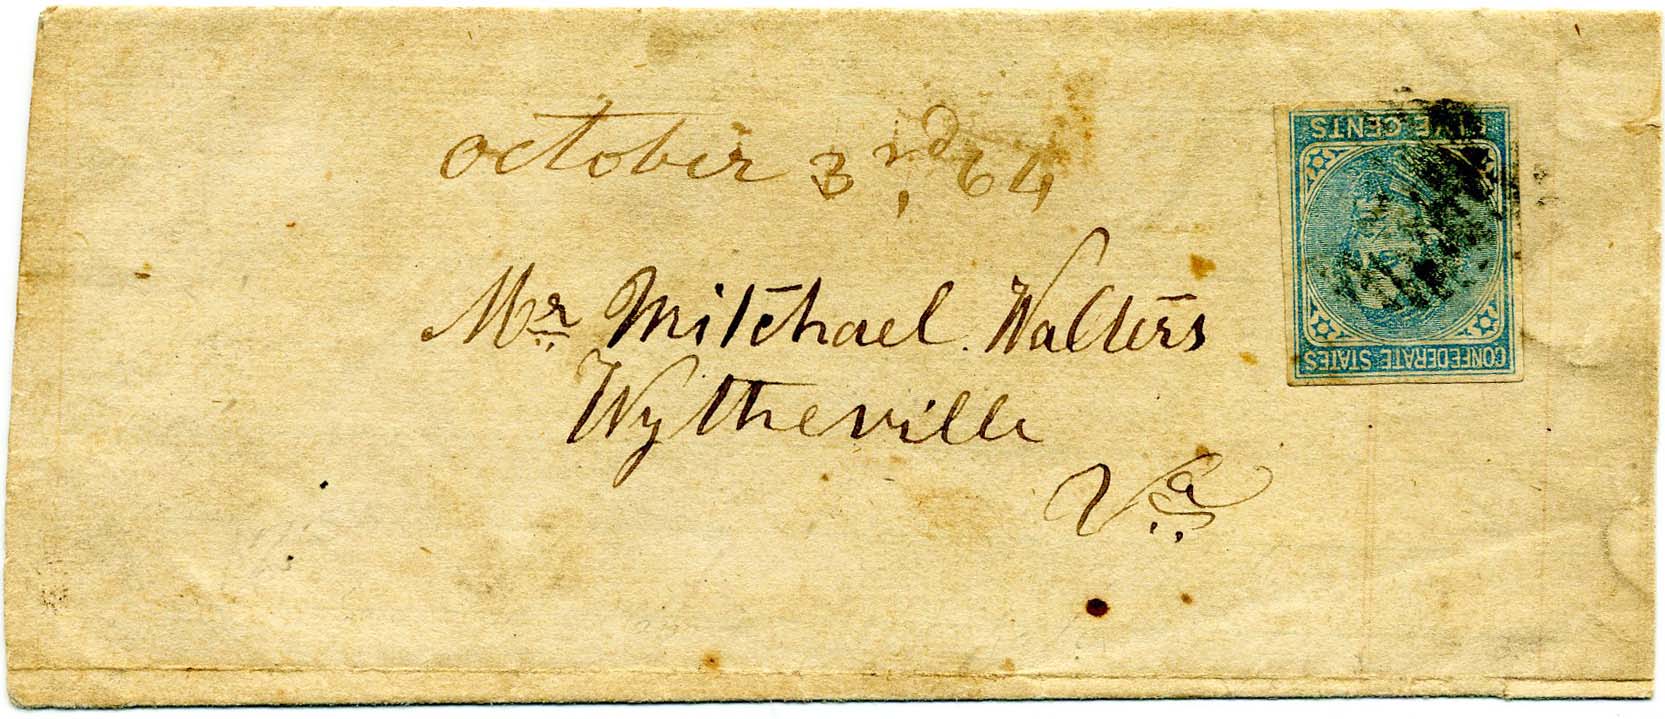 october 3rd, 64
Mr Mitchael Walters
Wytheville
Va
FIVE CENTS
CONFEDERATE STATES